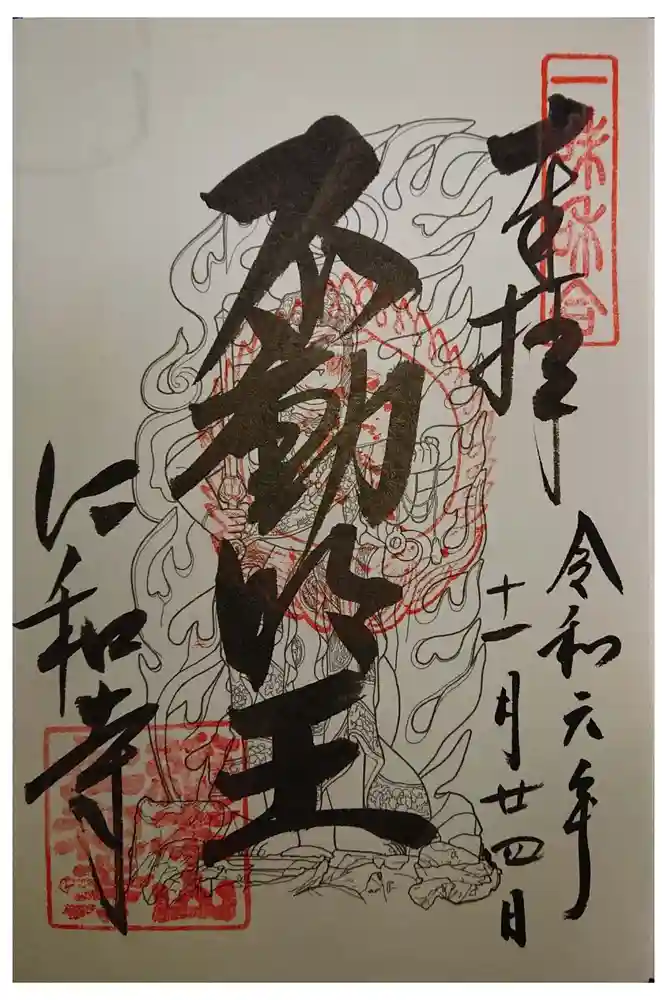 一味和合
奉拝
令和六年
十一月廿四日
不動明王
仁和寺